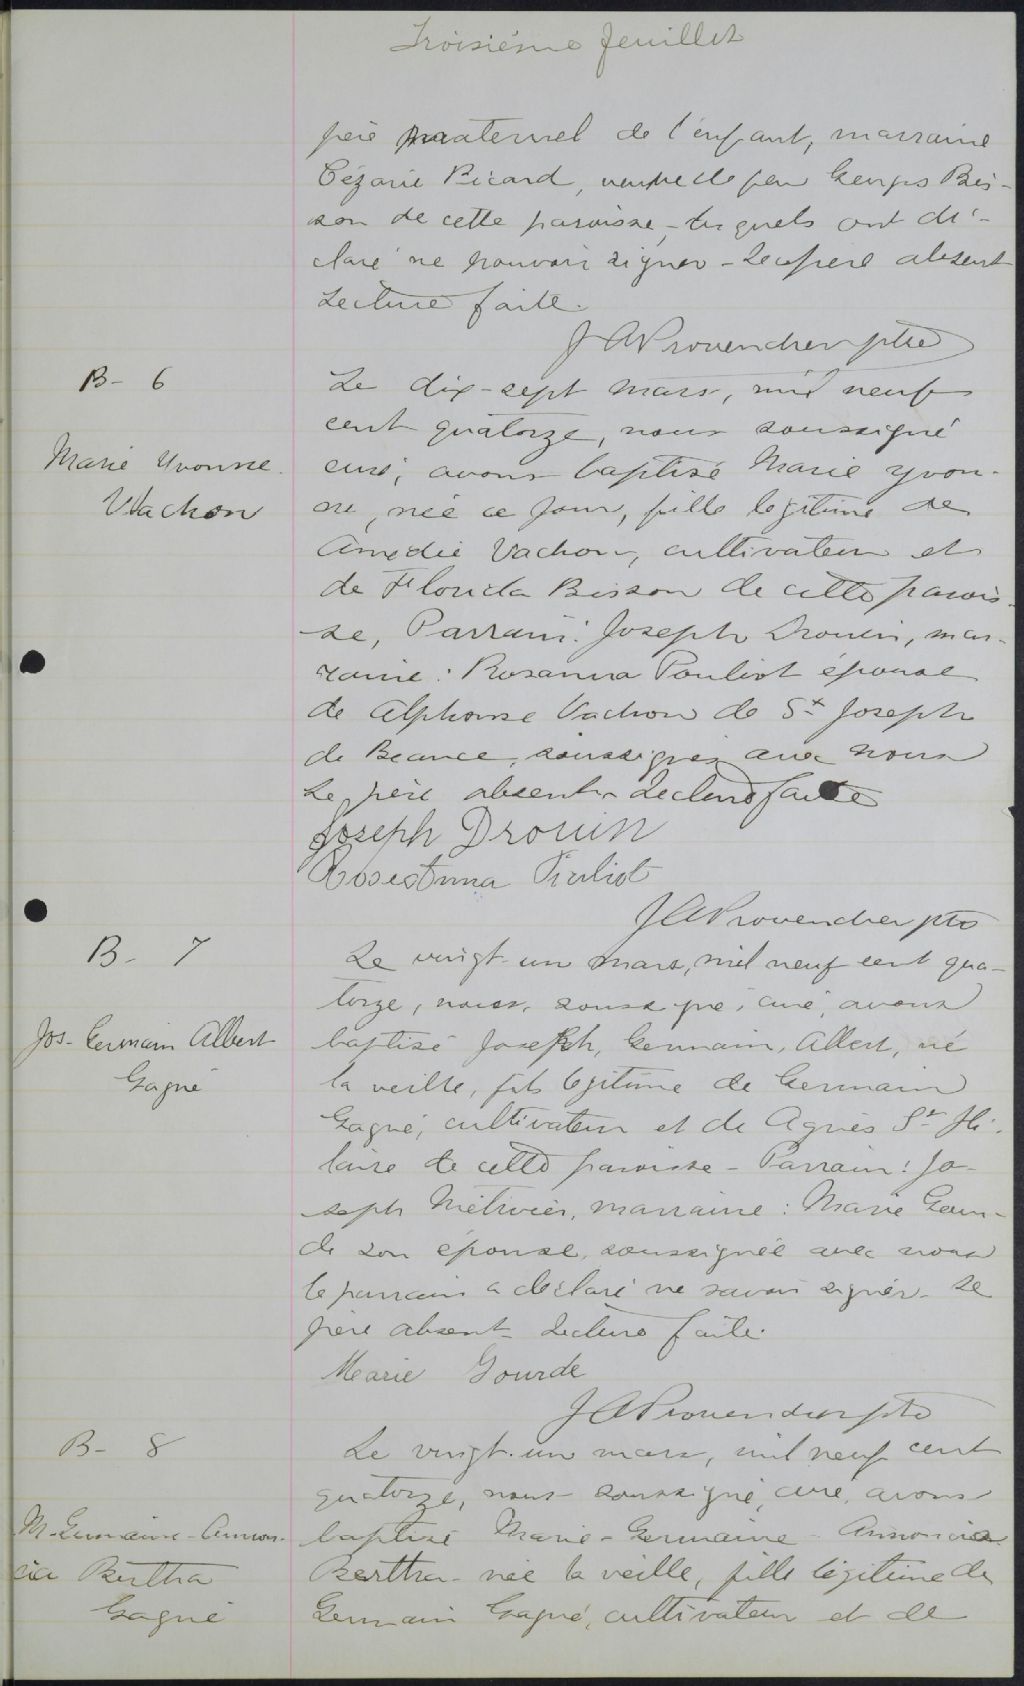 Troisième feuillet
père maternel de l'enfant, marraine
Cézarie Bicard, veuve de feu Georges Bis-
son de cette paroisse, - lesquels ont dé-
claré ne pouvoir signer - Le père absent
Lecture faite.
J A Provencher ptre
B- 6
Marie Yvonne
Vachon
Le dix-sept mars, mil neuf
cent quatorze, nous soussigné
curé, avons baptisé Marie Yvon-
ne, née ce jour, fille légitime de
Amédée Vachon, cultivateur et
de Florida Bisson de cette parois-
se, Parrain: Joseph Drouin, mar-
raine: Rosanna Pouliot épouse
de Alphonse Vachon de St Joseph
de Beauce, soussignés avec nous
Le père absent - Lecture faite
Joseph Drouin
Roseanna Pouliot
J A Provencher ptre
B- 7
Jos- Germain Albert
Gagné
Le vingt-un mars, mil neuf cent qua-
torze, nous, soussigné, curé, avons
baptisé Joseph, Germain, Albert, né
la veille, fils légitime de Germain
Gagné, cultivateur et de Agnès St Hi-
laire de cette paroisse - Parrain: Jo-
seph Métivier, marraine: Marie Gour-
de son épouse, soussignée avec nous
le parrain a déclaré ne savoir signer - Le
père absent - Lecture faite.
Marie Gourde
J A Provencher ptre
B- 8
M- Germaine - Annon-
cia Bertha
Gagné
Le vingt-un mars, mil neuf cent
quatorze, nous soussigné, curé, avons
baptisé Marie - Germaine - Annoncia
Bertha - née la veille, fille légitime de
Germain Gagné, cultivateur et de